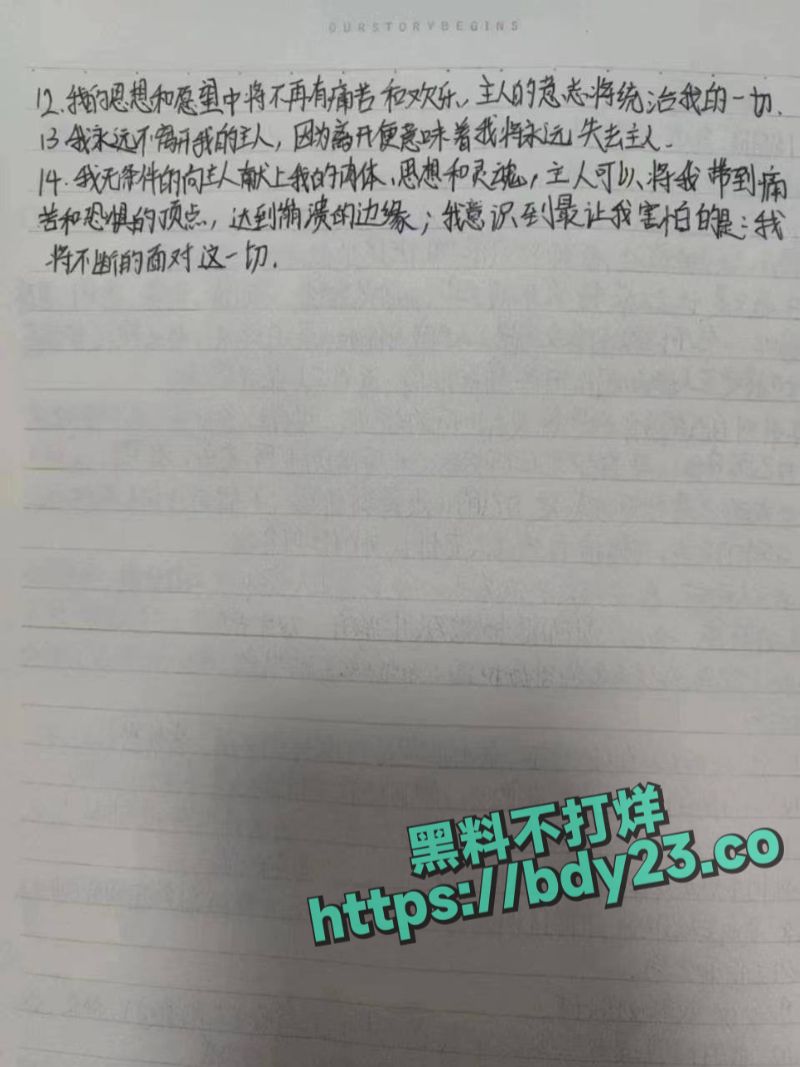 OURSTORYBEGINS
12.我的思想和愿望中将不再有痛苦和欢乐、主人的意志将统治我的一切.
13.我永远不离开我的主人，因为离开便意味着我将永远失去主人.
14.我无条件的向主人献上我的肉体、思想和灵魂，主人可以将我带到痛
苦和恐惧的顶点，达到崩溃的边缘；我意识到最让我害怕的是：我
将不断的面对这一切.
黑料不打烊
https://bdy23.co